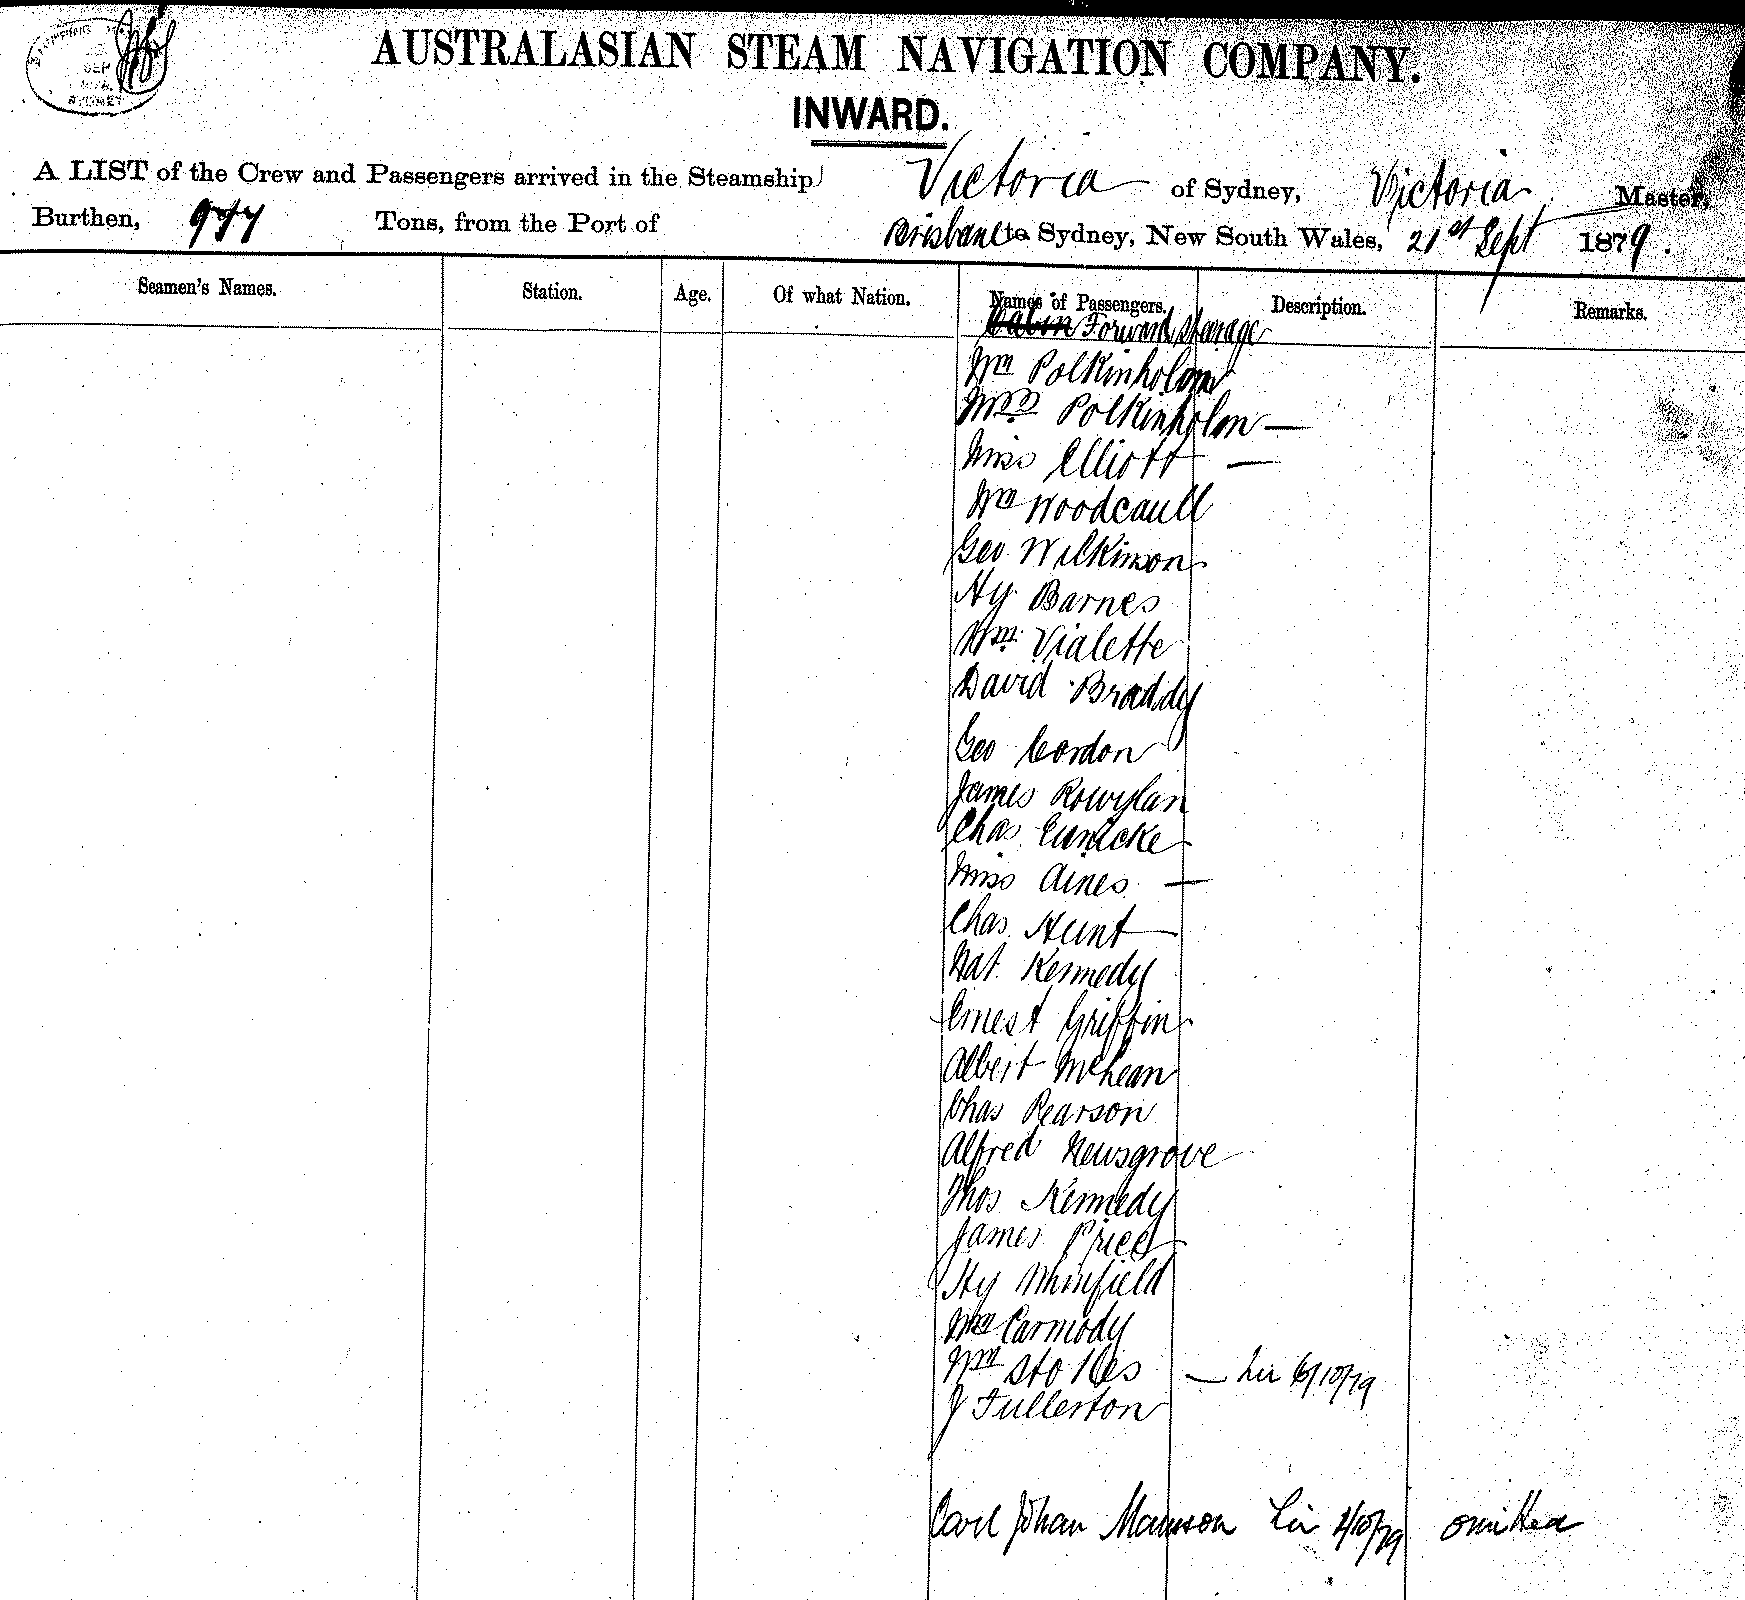 SEP
SYDNEY
AUSTRALASIAN STEAM NAVIGATION COMPANY.
INWARD.
A LIST of the Crew and Passengers arrived in the Steamship Victoria of Sydney, Victoria Master,
Burthen, Tons, from the Port of Brisbane to Sydney, New South Wales, 21st Sept 1879.
Seamen's Names. Station. Age. Of what Nation. Names of Passengers. Description. Remarks.
Cabin Forward Steerage
Wm Polkinholm
Mrs Polkinholm —
Miss Elliott —
Wm Woodcaull
Geo Wilkinson
Hy Barnes
Wm Vialette
David Braddy
Geo Cordon
James Rowylan
Chas Eunicke
Miss Aines —
Chas Hunt
Nat. Kennedy
Ernest Griffin
Albert McLean
Chas Pearson
Alfred Newsgrove
Thos Kennedy
James Price
Hy Minfield
Wm Carmody
Wm Stokes — Lir 6/10/79
J Fullerton
Carl Johan Manson Lir 2/10/79 omitted